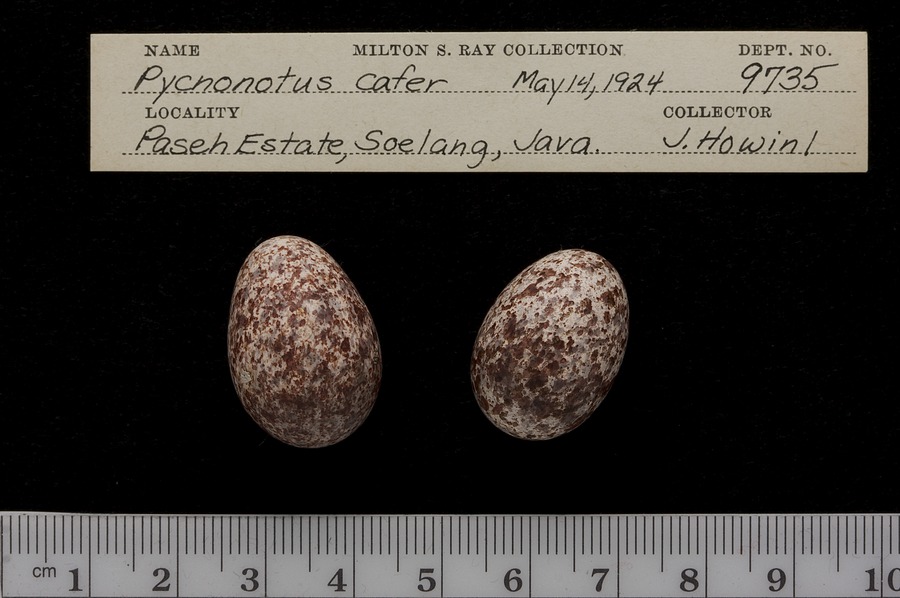 NAME MILTON S. RAY COLLECTION DEPT. NO.
Pycnonotus cafer May 14, 1924 9735
LOCALITY COLLECTOR
Paseh Estate, Soelang, Java. J. Howinl
cm 1 2 3 4 5 6 7 8 9 10